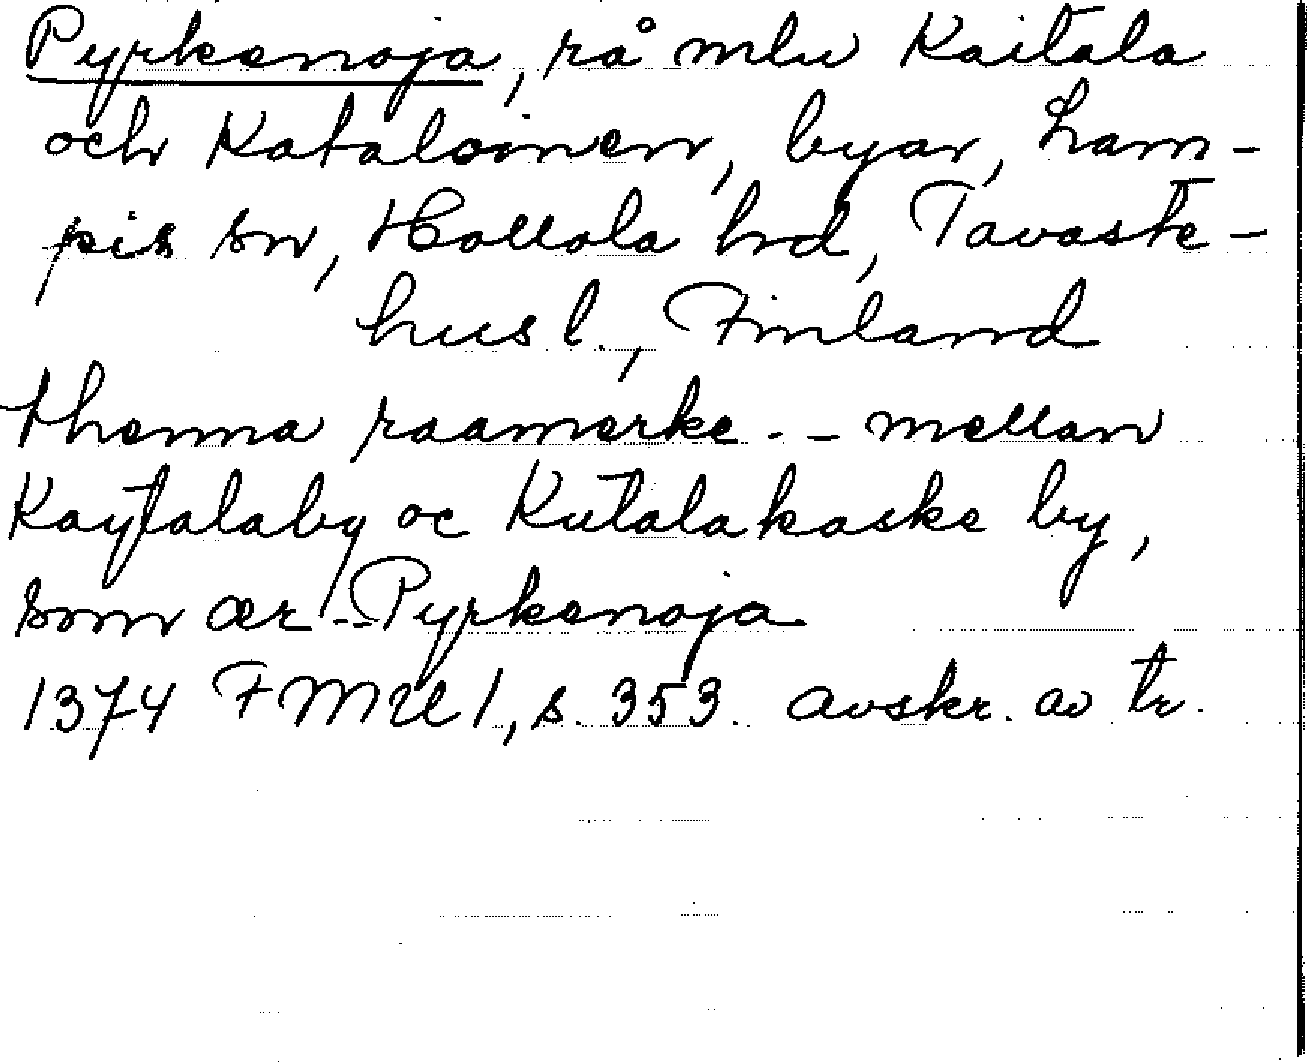 Pyrkenoja, rå mlu Kaitala
och Kataloinen, byar, Lam-
pis sn, Hollola hrd, Tavaste-
hus l., Finland
thenna raamerke -- mellan
Kaytalaby oc Kutalakaske by,
som ær -- Pyrkenoja
1374 FMU 1, s. 353. avskr. av tr.